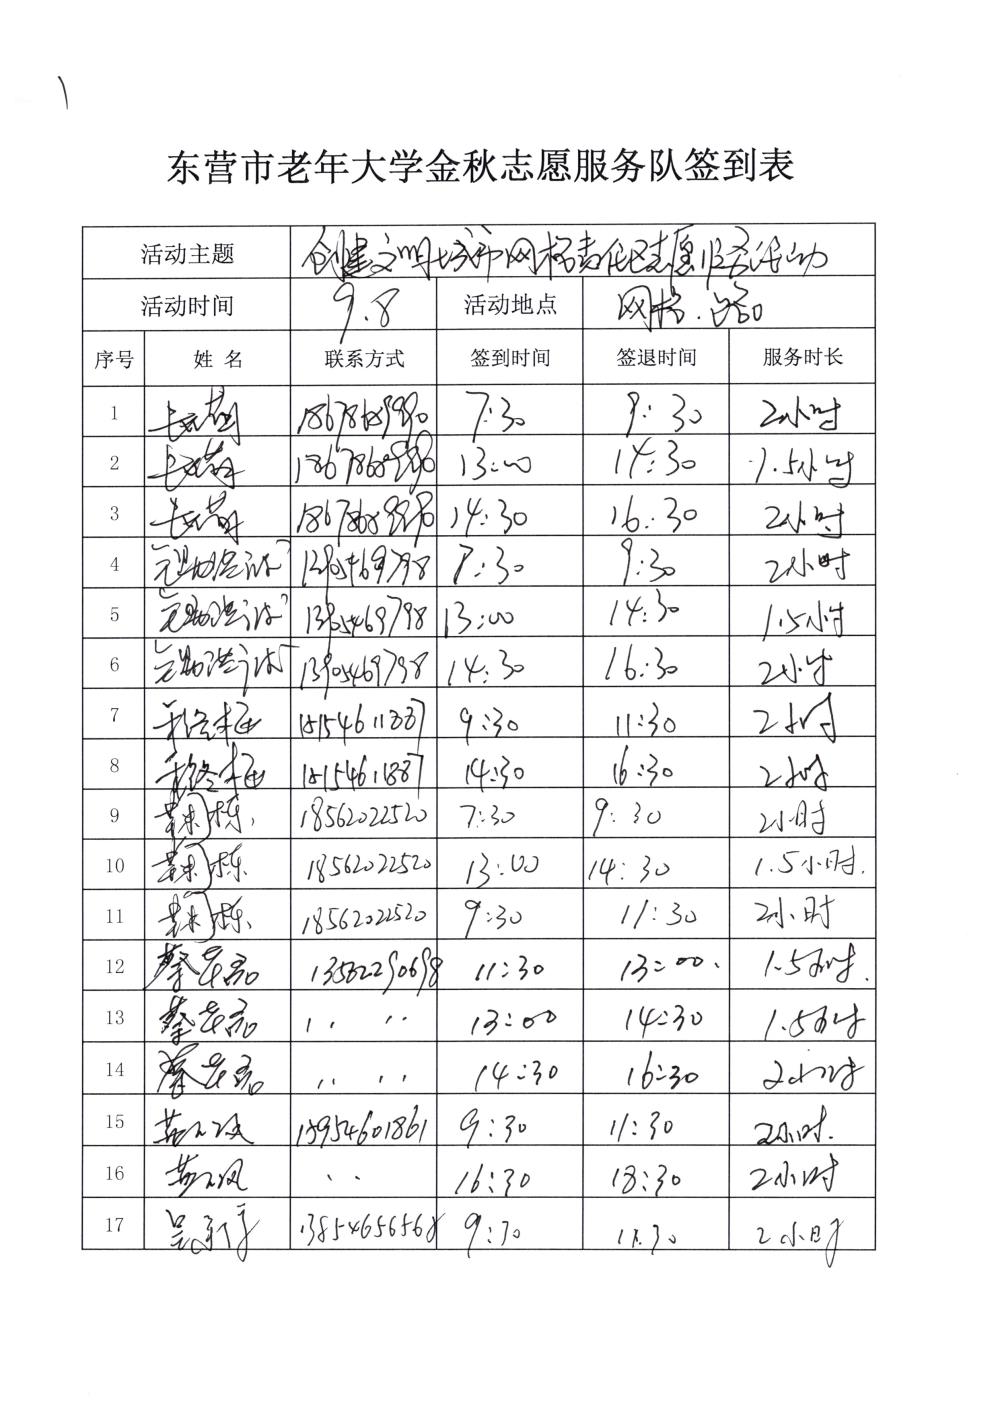 东营市老年大学金秋志愿服务队签到表
活动主题 创建文明城市网格责任区志愿服务活动
活动时间 9.8 活动地点 网格.路口
序号 姓名 联系方式 签到时间 签退时间 服务时长
1 18678689990 7:30 9:30 2小时
2 18678689990 13:00 14:30 1.5小时
3 18678689990 14:30 16:30 2小时
4 13905469798 7:30 9:30 2小时
5 13905469798 13:00 14:30 1.5小时
6 13905469798 14:30 16:30 2小时
7 9:30 11:30 2小时
8 14:30 16:30 2小时
9 18562022520 7:30 9:30 2小时
10 18562022520 13:00 14:30 1.5小时.
11 18562022520 9:30 11:30 2小时
12 13562290698 11:30 13:00. 1.5小时.
13 〃 〃 13:00 14:30 1.5小时
14 〃 〃 14:30 16:30 2小时
15 9:30 11:30 2小时.
16 〃 16:30 18:30 2小时
17 13854656568 9:30 11.30 2小时